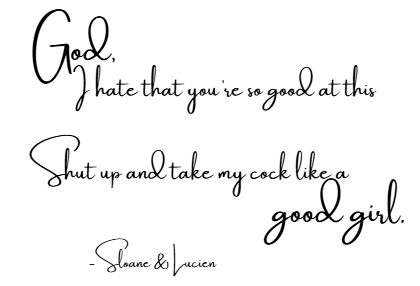 God,
I hate that you're so good at this
Shut up and take my cock like a
good girl.
- Sloane & Lucien